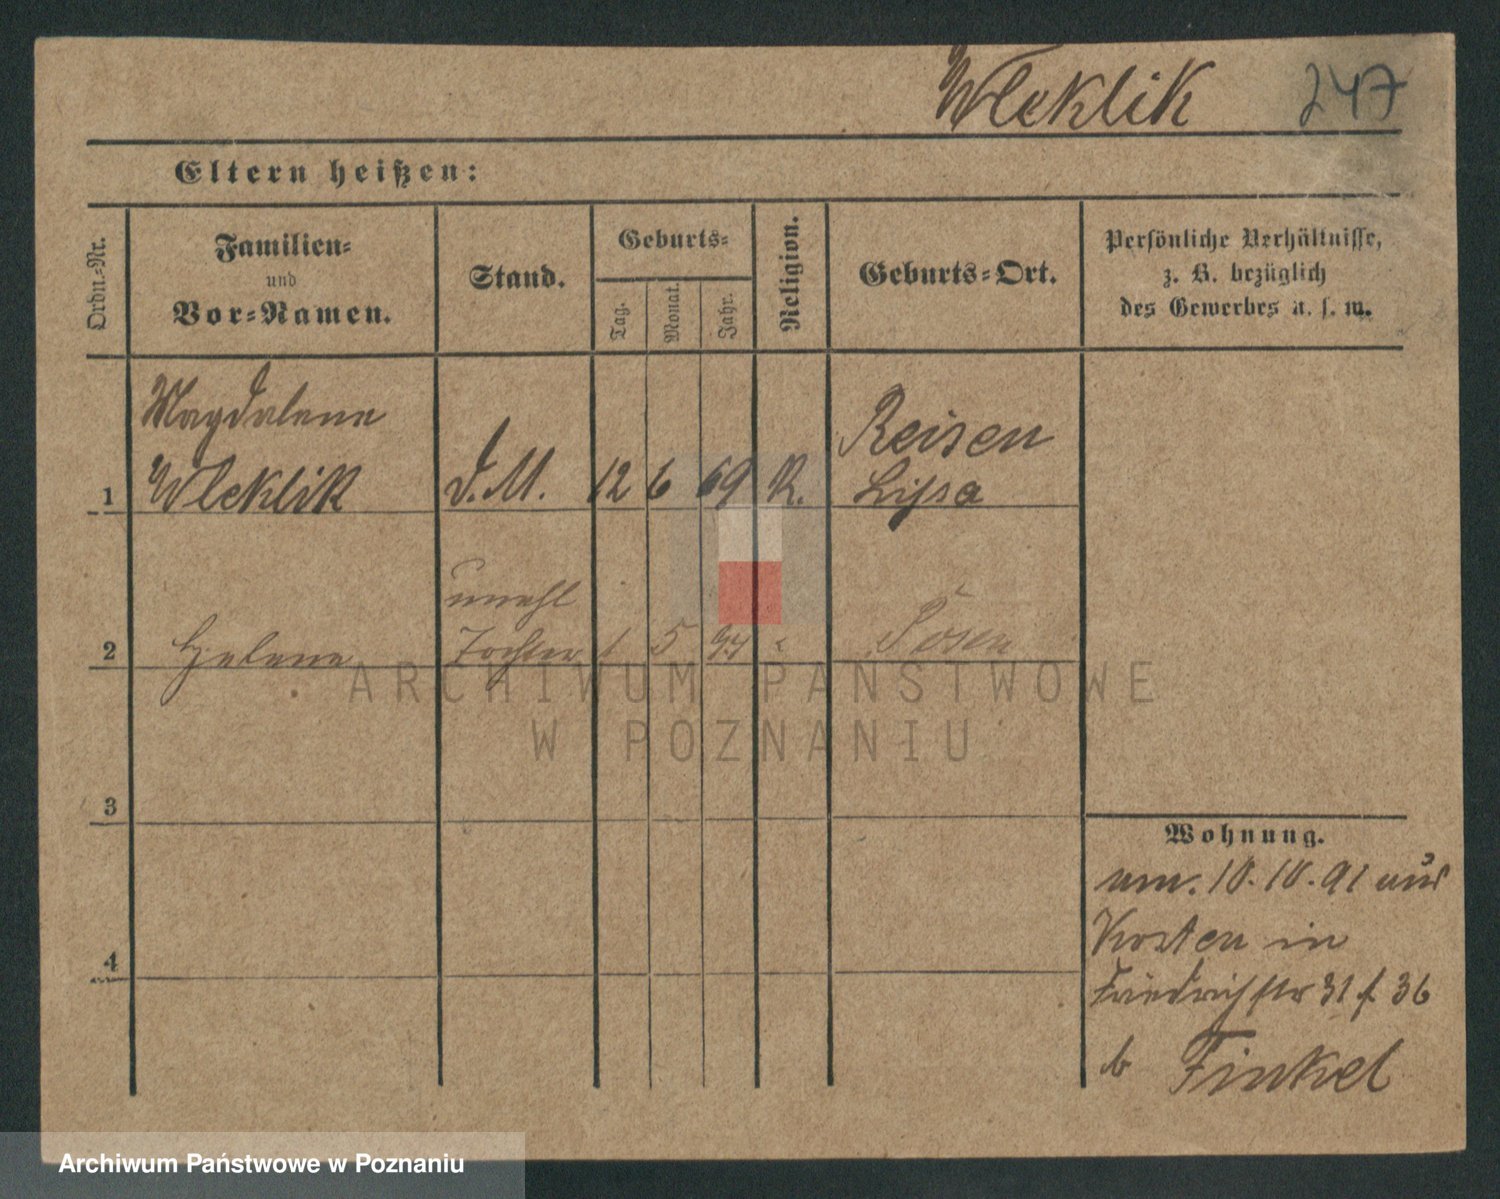 Wleklik 247
Eltern heißen:
Ordn.-Nr.
Familien-
und
Vor-Namen.
Stand.
Geburts-
Tag.
Monat.
Jahr.
Religion.
Geburts-Ort.
Persönliche Verhältnisse,
z. B. bezüglich
des Gewerbes u. s. w.
Magdalene Reisen
1 Wleklik d. M. 12 6 69 K. Lissa
unehl
2 Helene Tochter 1 5 94 Posen
3
4
Wohnung.
am. 10.10.91 aus
Kosten in
Friedrichstr 31 f 36
b Finkel
ARCHIWUM PAŃSTWOWE
W POZNANIU
Archiwum Państwowe w Poznaniu